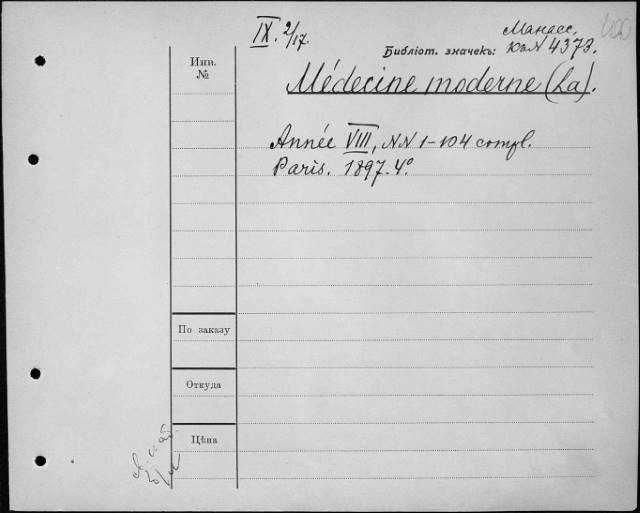 IX. 2/17.
Манасс. 400
Библіот. значекъ: № 4373.
Инв.
№
Médecine moderne (La).
Année VIII, NN 1-104 compl.
Paris. 1897. 4°
По заказу
Откуда
Цѣна